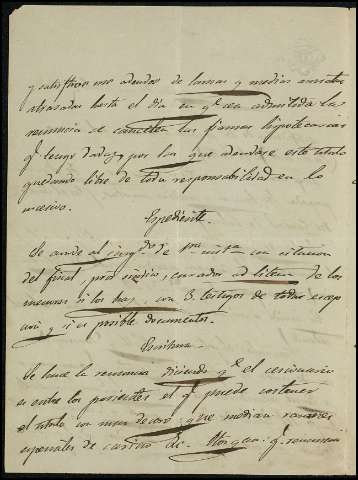 y satisfechos mis adeudos de lanzas y medias annatas
atrasadas hasta el dia en qe sea admitida la
renuncia se cancelen las fianzas hipotecarias
qe tengo dadas por las que adeudase este titulo
quedando libre de toda responsabilidad en lo
sucesivo.
Espediente.
Se acude al juzgdo de pra instca con citacion
del fiscal, pror sindico, curador ad litem de los
menores si los hay, con 3 testigos de toda escep
cion y si es posible documentos.
Escritura
Se hace la renuncia diciendo qe el cesionario
es entre los parientes el qe puede sostener
el titulo con mas decoro; que median razones
especiales de cariño &c. Otorgan qe renuncian